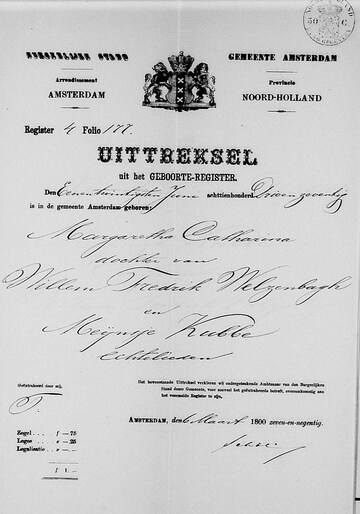 50 C
BURGERLIJKE STAND
GEMEENTE AMSTERDAM
Arrondissement
AMSTERDAM
Provincie
NOORD-HOLLAND
Register 4 Folio 177.
UITTREKSEL
uit het GEBOORTE-REGISTER.
Den Eenentwintigsten Junij achttienhonderd Drieenzeventig
is in de gemeente Amsterdam geboren:
Margaretha Catharina
dochter van
Willem Fredrik Welzenbagh
en
Meijntje Kubbe
echtelieden
Gefolieerd door mij,
Het bovenstaande Uittreksel verklaren wij ondergeteekende Ambtenaar van den Burgerlijken
Stand dezer Gemeente, voor zooveel het geëxtraheerde betreft, overeenkomstig aan
het voormelde Register te zijn.
Zegel ... f -75
Leges ... » -25
Legalisatie .. » -.-
f 1.-
AMSTERDAM, den 6 Maart 1800 zeven-en-negentig.